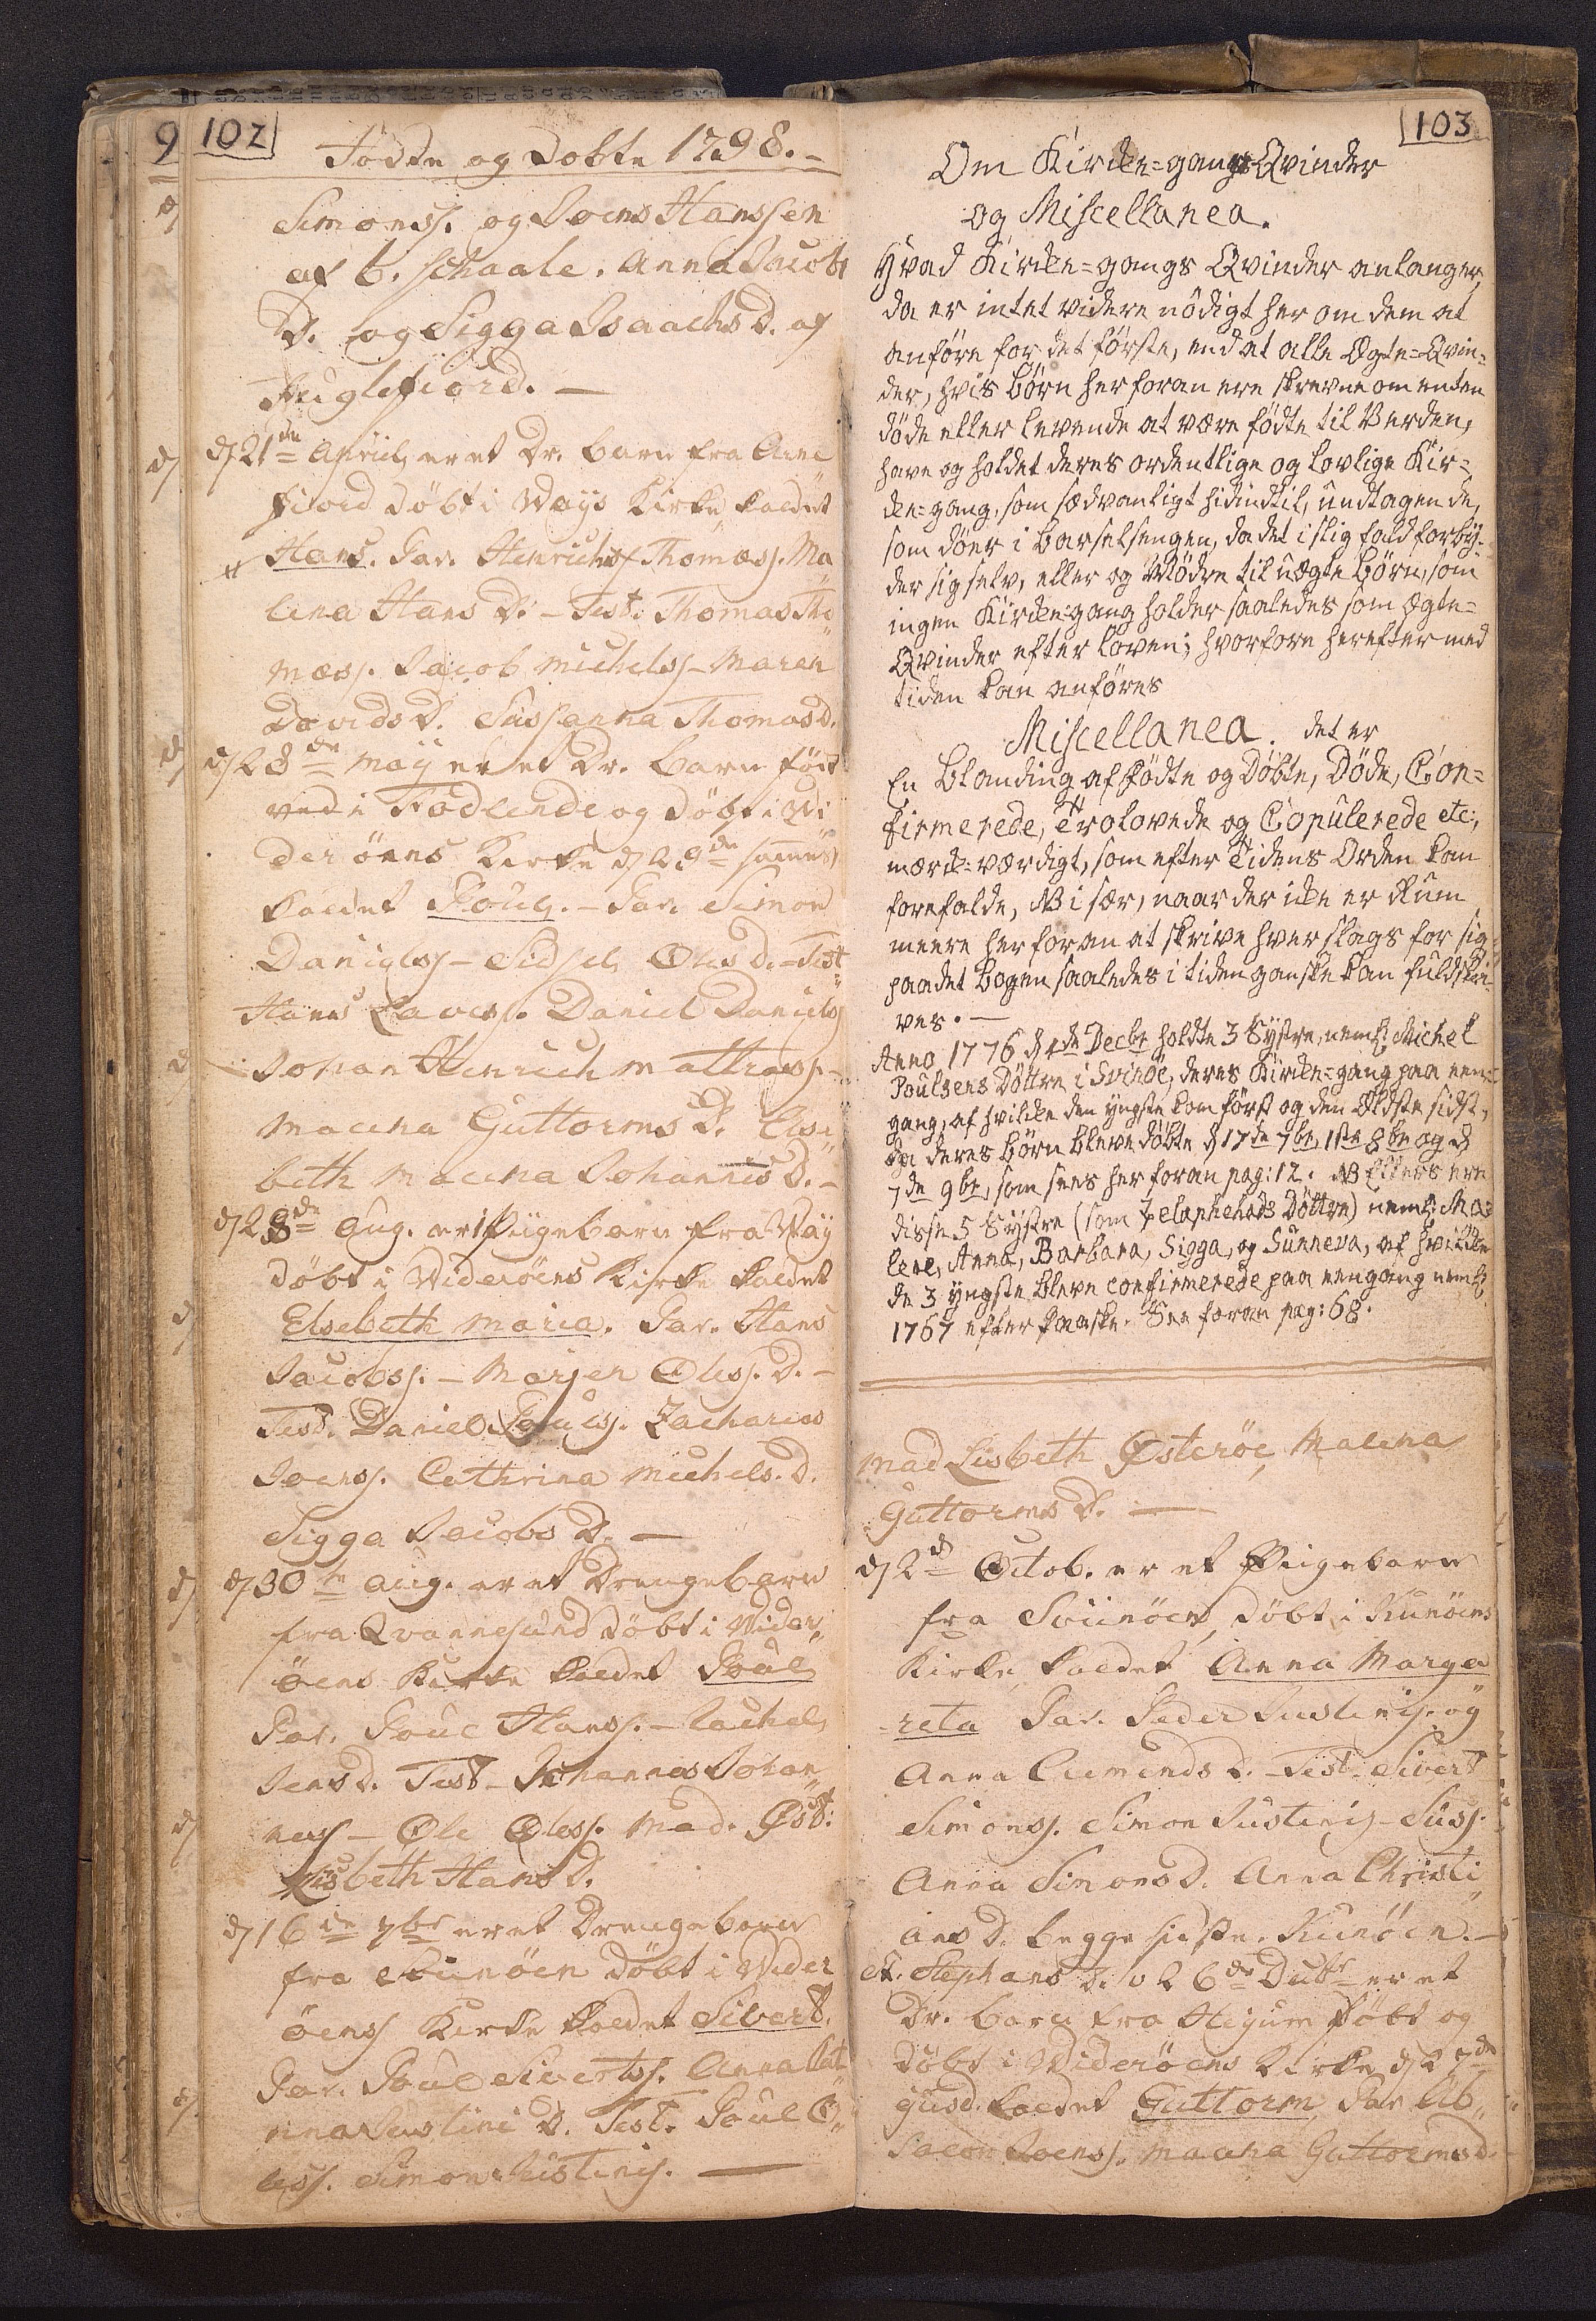 102
Fødde og Døbte 1798.-
Simonss. og Joens Hanssen
af b. schaale. Anna Jacobs
D. og Sigga Isaachs D. af
Fuglefiord. —
d 21de April, er et Dr. barn fra Arne
fiord døbt i Waÿs Kirke kaldet
Hans. Par. Henrich Thomæs. Ma
lena Hans D. - Test. Thomas Tho
mæs. Jacob Michelss - Maren
Davids D. Sussanna Thomasd.
d 28de maÿ er et Dr. barn født
ved i Fødlende og døbt i Wi
derøens Kirke d 29de samme
kaldet Poul. - Par. Simon
Danielss - Sidsel Oles d. - Test
Hans Lavess. Daniel Danielss
Johan Henrich Matthæss. -
Malena Guttorms D. Else
beth Malena Johannis D. -
d 28de Aug. er 1 Pigebarn fra Waÿ
døbt i Widerøens Kirke kaldet
Elsebeth Maria. Par. Hans
Jacobss. - Marjen Oless. D. -
Test. Daniel Poulss. Zacharias
Joenss. Cathrina Michels. D.
Sigga Jacobs D. —
d 30te Aug. er et Drengebarn
fra Qvannesund døbt i Wider
øens Kirke kaldet Poul
Par. Poul Hanss. - Rachel
Jens d. Test - Johannes Johan
ness - Ole Oless. Mad. Øst:
Lisbeth Hans D.
d 16de 7br er et Drengebarn
fra Svinøen døbt i Wider
øens Kirke kaldet Sivert.
Par. Poul Sivertss. Anna Cat
rina Justini D. Test. Poul O
less. Simon Justiniss. —
103
Om Kircke=gangs Qvinder
og Miscellanea.
Hvad Kircke=gangs Qvinder anlanger,
da er intet videre nödigt her om dem at
anföre for det förste, end at alle Ægte=Qvin=
der, hvis Börn her foran ere skrevne om enten
döde eller levende at være födte til Verden,
have og holdet deres ordentlige og lovlige Kir=
cke=gang, som sædvanligt hidindtil, undtagen de,
som döer i Barselsengen, da det i slig fald forby=
der sig selv, eller og Mödre til uægte Börn, som
ingen Kircke=gang holder saaledes som Ægte=
Qvinder efter Loven; hvorfore herefter med
tiden kan anföres
Miscellanea. det er
En Blanding af Födte og Döbte, Döde, Con=
firmerede, Trolovede og Copulerede etc:,
mærck=værdigt, som efter Tidens Orden kan
forefalde, NB i sær, naar der icke er Rum
meere her foran at skrive hver slags for sig
paa det Bogen saaledes i tiden ganske kan fuldskri=
ves. —
Anno 1776 d 4de Decbr holdte 3 Systre, neml: Michel
Poulsens Döttre i Svinöe, deres Kircke=gang paa een=
gang, af hvilcke den yngste kom först og den Ældste sidst,
da deres Börn bleve döbte d 17de 7br, 1ste 8br og d
7de 9br, som sees her foran pag: 12. NB Ellers ere
disse 5 Systre (som Zelaphehads Döttre) neml: Ma=
lene, Anna, Barbara, Sigga, og Sunneva, af hvilcke
de 3 yngste bleve confirmerede paa eengang neml:
1767 efter Paaske. See foran pag: 68.
Mad Lisbeth Østerøe, Malena
Guttorms D. —
d 2d Octob. er et Pigebarn
fra Sviinøen, døbt i Kunøens
Kirke, kaldet Anna Marga
-reta Par. Peder Justiniss. og
Anna Clemends D. - Test. Sivert
Simonss. Simon Justiniss - Suss.
Anna Simons D. Anna Christi
ans D. begge sidste, Kunøen. -
St. Stephans D. d 26de Decbr er et
Dr. barn fra Higum født og
døbt i Widerøens Kirke d 27de
ejusd. kaldet Guttorm, Par. Ab
salon Joenss. Malena Guttorms d.